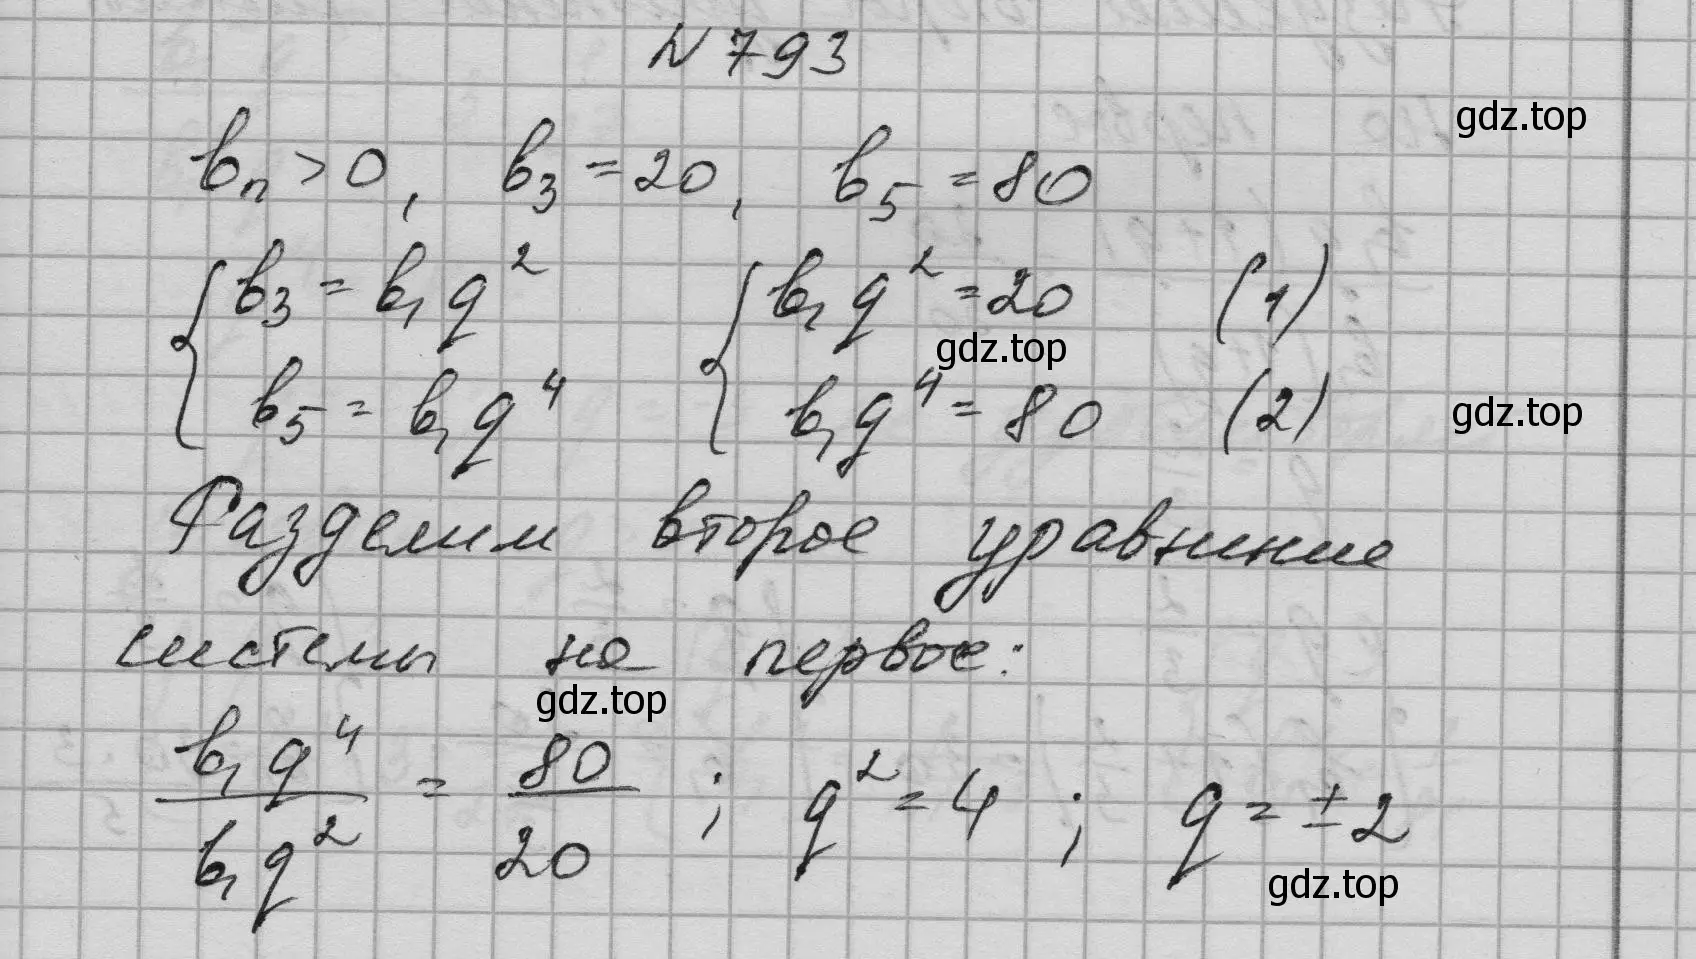 N 793
gdz.top
bₙ > 0, b₃ = 20, b₅ = 80
{ b₃ = b₁q² { b₁q² = 20 (1)
gdz.top
{ b₅ = b₁q⁴ { b₁q⁴ = 80 (2)
gdz.top
Разделим второе уравнение
системы на первое:
gdz.top
b₁q⁴ / b₁q² = 80 / 20 ; q² = 4 ; q = ± 2
gdz.top